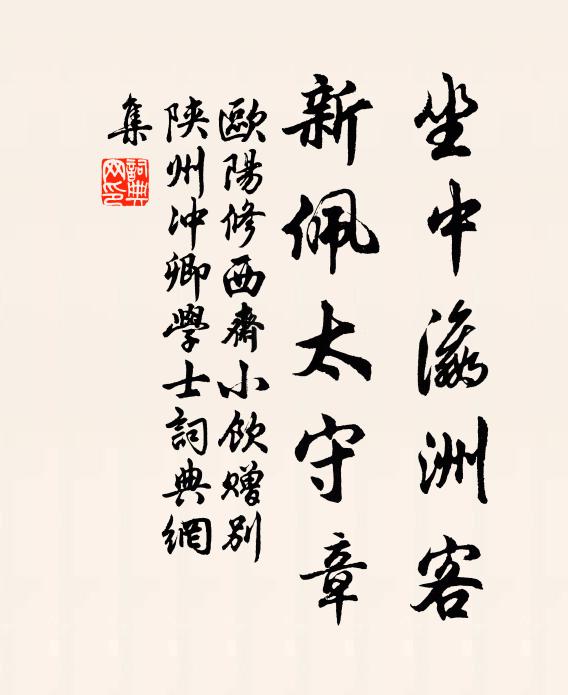 坐中瀛洲客
新佩太守章
歐陽修西齋小飲贈別
陝州冲卿學士詞典網
集
詞典網印